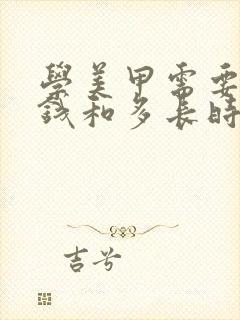 學美甲需要
錢和多長時
吉兮